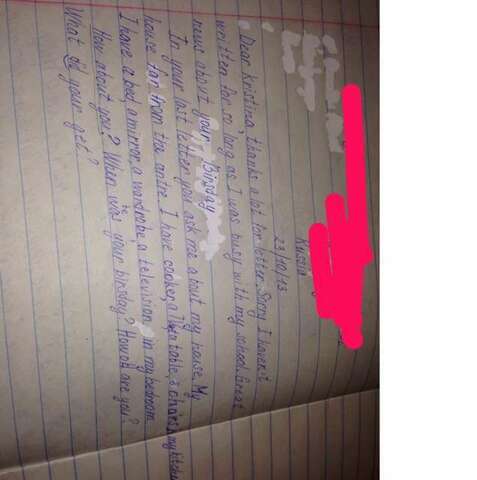 Russia
23/10/13
Dear Kristina, thanks a lot for letter. Sorry I haven't
written for so long as I was busy with my school. Great
news about your Birsday
In your last letter you ask me about my house. My
house far from the centre. I have cooker, a table, 8 chairs
I have a bed, a mirror, a wardrobe, a television in my bedroom
How about you? When was your birsday? How old are you?
What did your get?